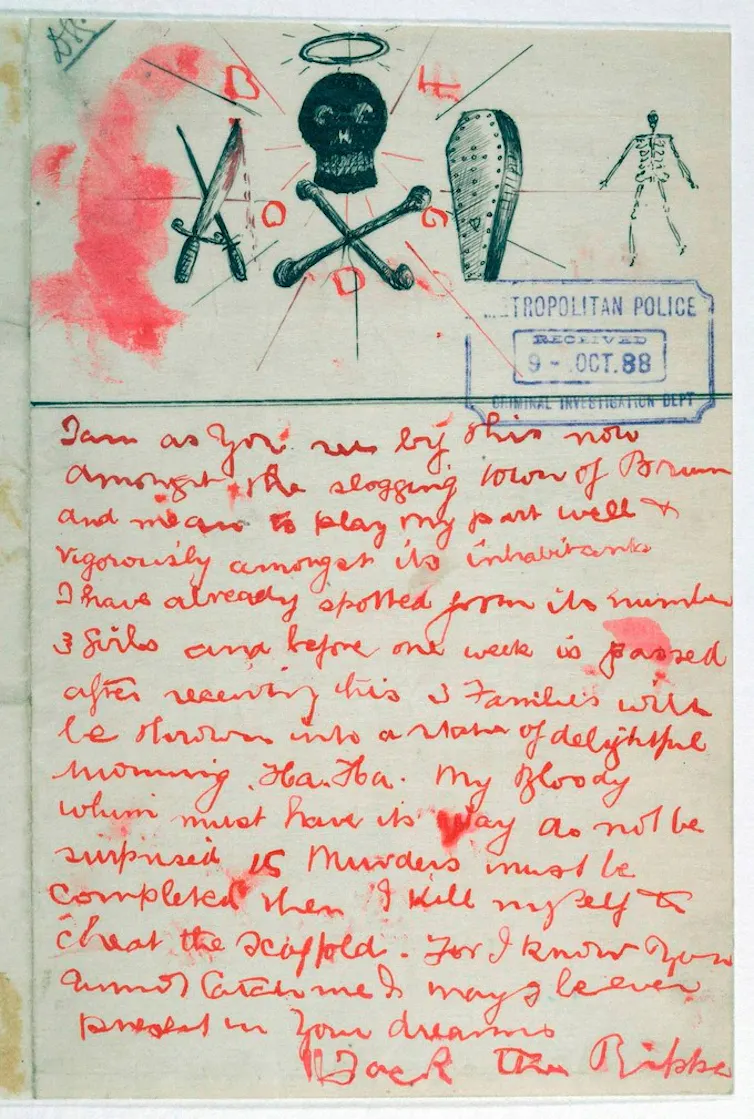 B
O
D
TROPOLITAN POLICE
RECEIVED
9 - OCT.88
CRIMINAL INVESTIGATION DEPT
I am as you see by this now
amongst the slogging town of Brum
and mean to play my part well &
vigorously amongst its inhabitants
I have already spotted from its number
3 Girls and before one week is passed
after receiving this 3 Families will
be thrown into a state of delightful
mourning. Ha. Ha. My Bloody
whim must have its way do not be
surprised 15 Murders must be
completed then I kill myself to
cheat the scaffold. For I know you
cannot catch me & may I be ever
present in your dreams
Jack the Ripper